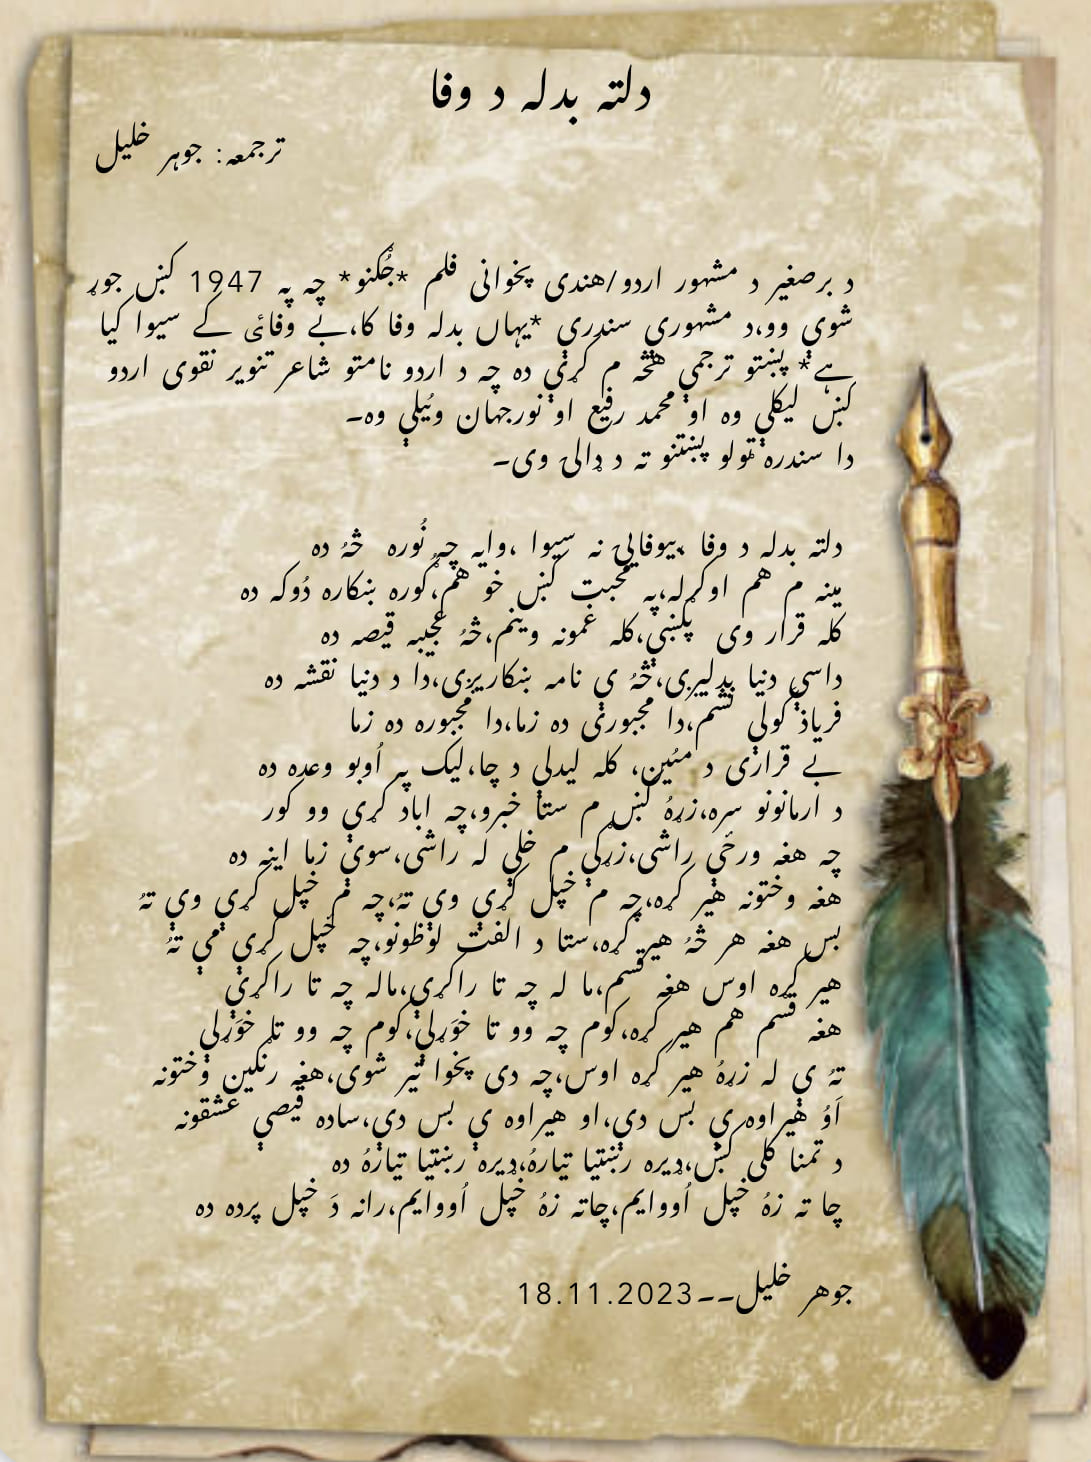 دلته بدله د وفا
ترجمعه: جوہر خلیل
د برصغیر د مشهور اردو/هندی پخوانی فلم *جُگنو* چه په 1947 کښ جوړ
شوې وو،د مشهورې سندرې *یہاں بدلہ وفا کا،بے وفائی کے سیوا کیا
ہے* پښتو ترجمې هڅه م کړې ده چه د اردو نامتو شاعر تنویر نقوی اردو
کښ لیکلې وه او محمد رفیع او نورجهان ویُیلې وه۔
دا سندره ټولو پښتنو ته د ډالئ وی۔
دلته بدله د وفا ،بیوفایئ نه سیوا ،وایه چه نُوره څهٔ ده
مینه م هم اوکړله،په محبت کښ خو هم،ګوره ښکاره دُوکه ده
کله قرار وی پکښې،کله غمونه وینم،څهٔ عجیبه قیصه ده
داسې دنیا بدلیږی،څهٔ ې نامه ښکاریږی،دا د دنیا نقشه ده
فریاد کولې نشم،دا مجبورې ده زما،دا مجبوره ده زما
بے قرارئ د مئین، کله لیدلې د چا،لیک پر اُوبو وعده ده
د ارمانونو سره،زړهٔ کښ م ستا خبرو،چه اباد کړې وو کور
چه هغه ورځې راشی،زړګې م خلې له راشی،سوې زما اینه ده
هغه وختونه هیر کړه،چه م خپل کړې وې تهٔ،چه م خپل کړې وې تهٔ
بس هغه هر څهٔ هیر کړه،ستا د الفت لوظونو،چه خپل کړې مې تهٔ
هیر کړه اوس هغه قسم،ما له چه تا راکړې،ماله چه تا راکړې
هغه قسم هم هیر کړه،کوم چه وو تا خوَړلې،کوم چه وو تا خوَړلې
تهٔ ې له زړهٔ هیر کړه اوس،چه دی پخوا تیر شوی،هغه رنګین وختونه
اَوُ هیراوه ې بس دې،او هیراوه ې بس دې،ساده قیصې عشقونه
د تمنا کلی کښ،ډیره رښتیا تیارهٔ،ډیره رښتیا تیارهٔ ده
چا ته زهٔ خپل اُووایم،چاته زهٔ خپل اُووایم،رانه دَ خپل پرده ده
جوهر خلیل۔۔18.11.2023